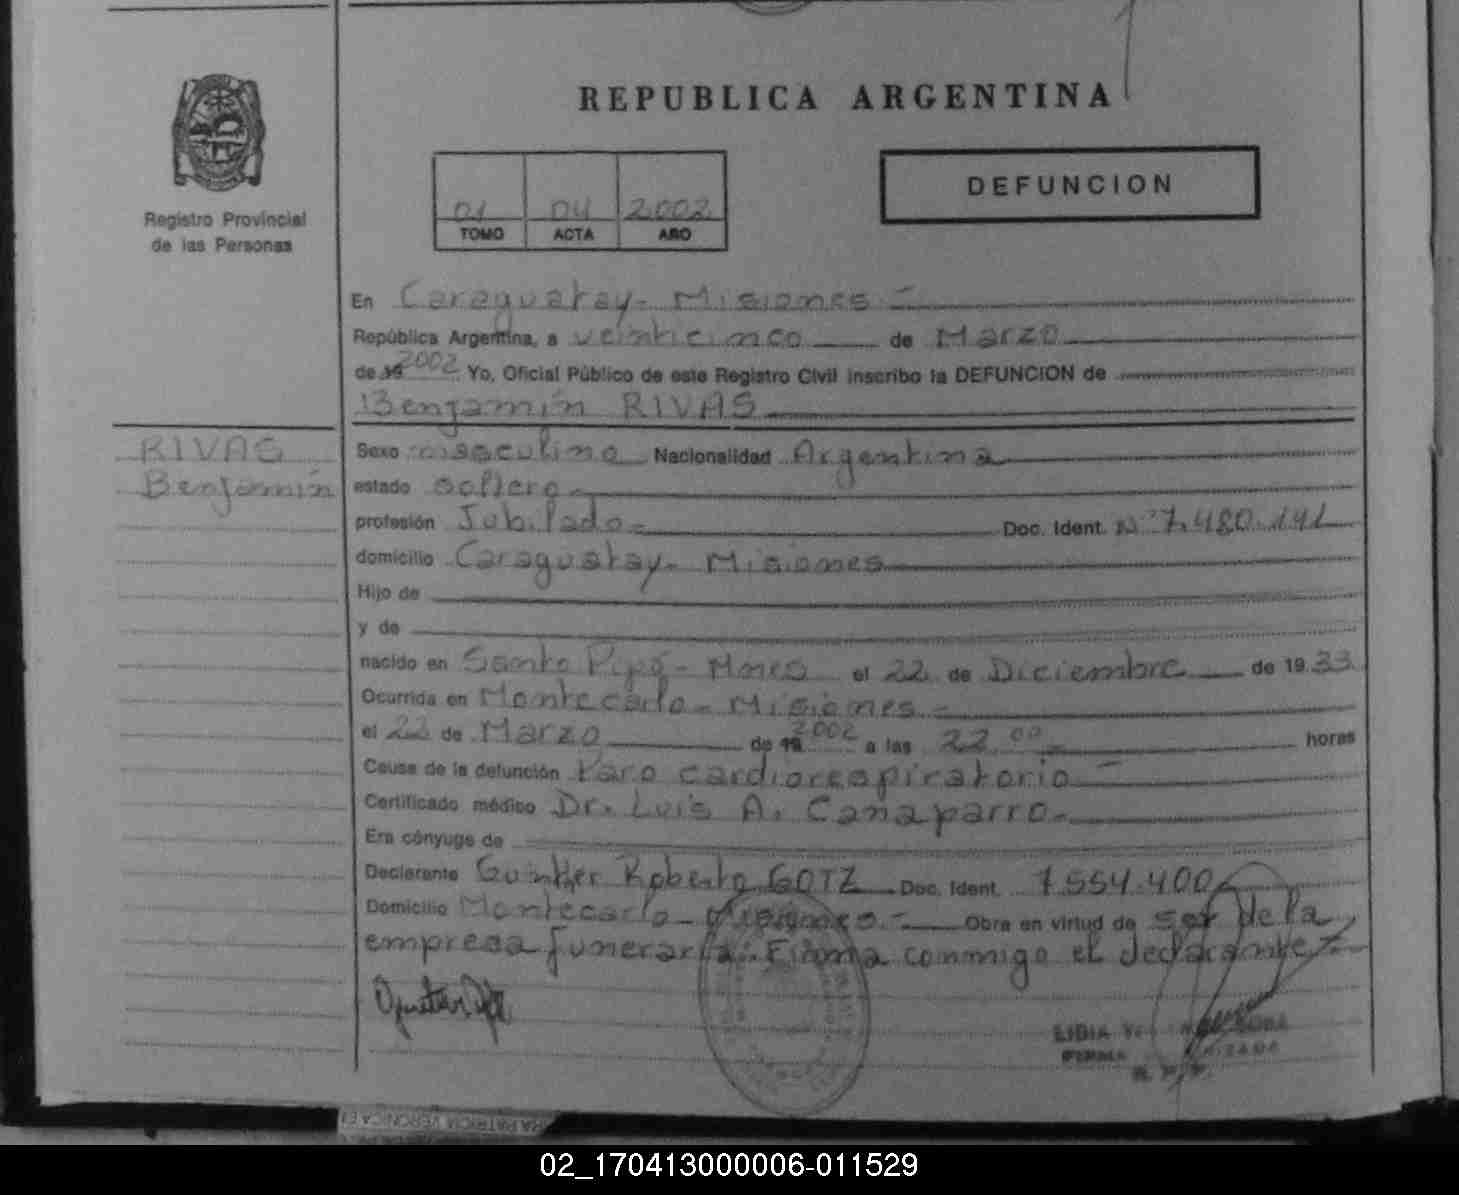 REPUBLICA ARGENTINA
Registro Provincial
de las Personas
01 04 2002
TOMO ACTA AÑO
DEFUNCION
En Caraguatay - Misiones -
República Argentina, a veinticinco de Marzo
de 19 2002 Yo, Oficial Público de este Registro Civil inscribo la DEFUNCION de
Benjamín RIVAS
RIVAS
Benjamín
Sexo masculino Nacionalidad Argentina
estado soltero -
profesión Jubilado - Doc. Ident. Nº 7.480.141
domicilio Caraguatay - Misiones
Hijo de
y de
nacido en Santo Pipó - Mnes el 22 de Diciembre de 1933
Ocurrida en Montecarlo - Misiones -
el 22 de Marzo de 19 2002 a las 22,00 - horas
Causa de la defunción Paro cardiorespiratorio -
Certificado médico Dr. Luis A. Cañaparro -
Era cónyuge de
Declarante Gunther Roberto GOTZ Doc. Ident. 7.554.400
Domicilio Montecarlo - Misiones - Obra en virtud de ser de la
empresa funeraria: Firma conmigo el declarante -
LIDIA
FIRMA
02_170413000006-011529